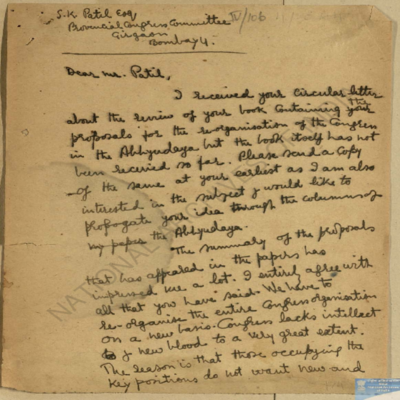 S.K Patil Esq
Provincial Congress Committee
Girgaon
Bombay 4.
IV/106
Dear Mr. Patil,
I received your circular letter
about the review of your book containing the your
proposals for the reorganisation of the Congress
in the Abhyudaya but the book itself has not
been received so far. Please send a copy
of the same at your earliest as I am also
interested in the subject & would like to
propogate your idea through the columns of
my paper the Abhyudaya.
The summary of the proposals
that has appeared in the papers has
impressed me a lot. I entirely agree with
all that you have said. We have to
re-organise the entire Congress organisation
on a new basis. Congress lacks intellect
& new blood to a very great extent.
The reason is that those occupying the
key positions do not want new and
NATIONAL